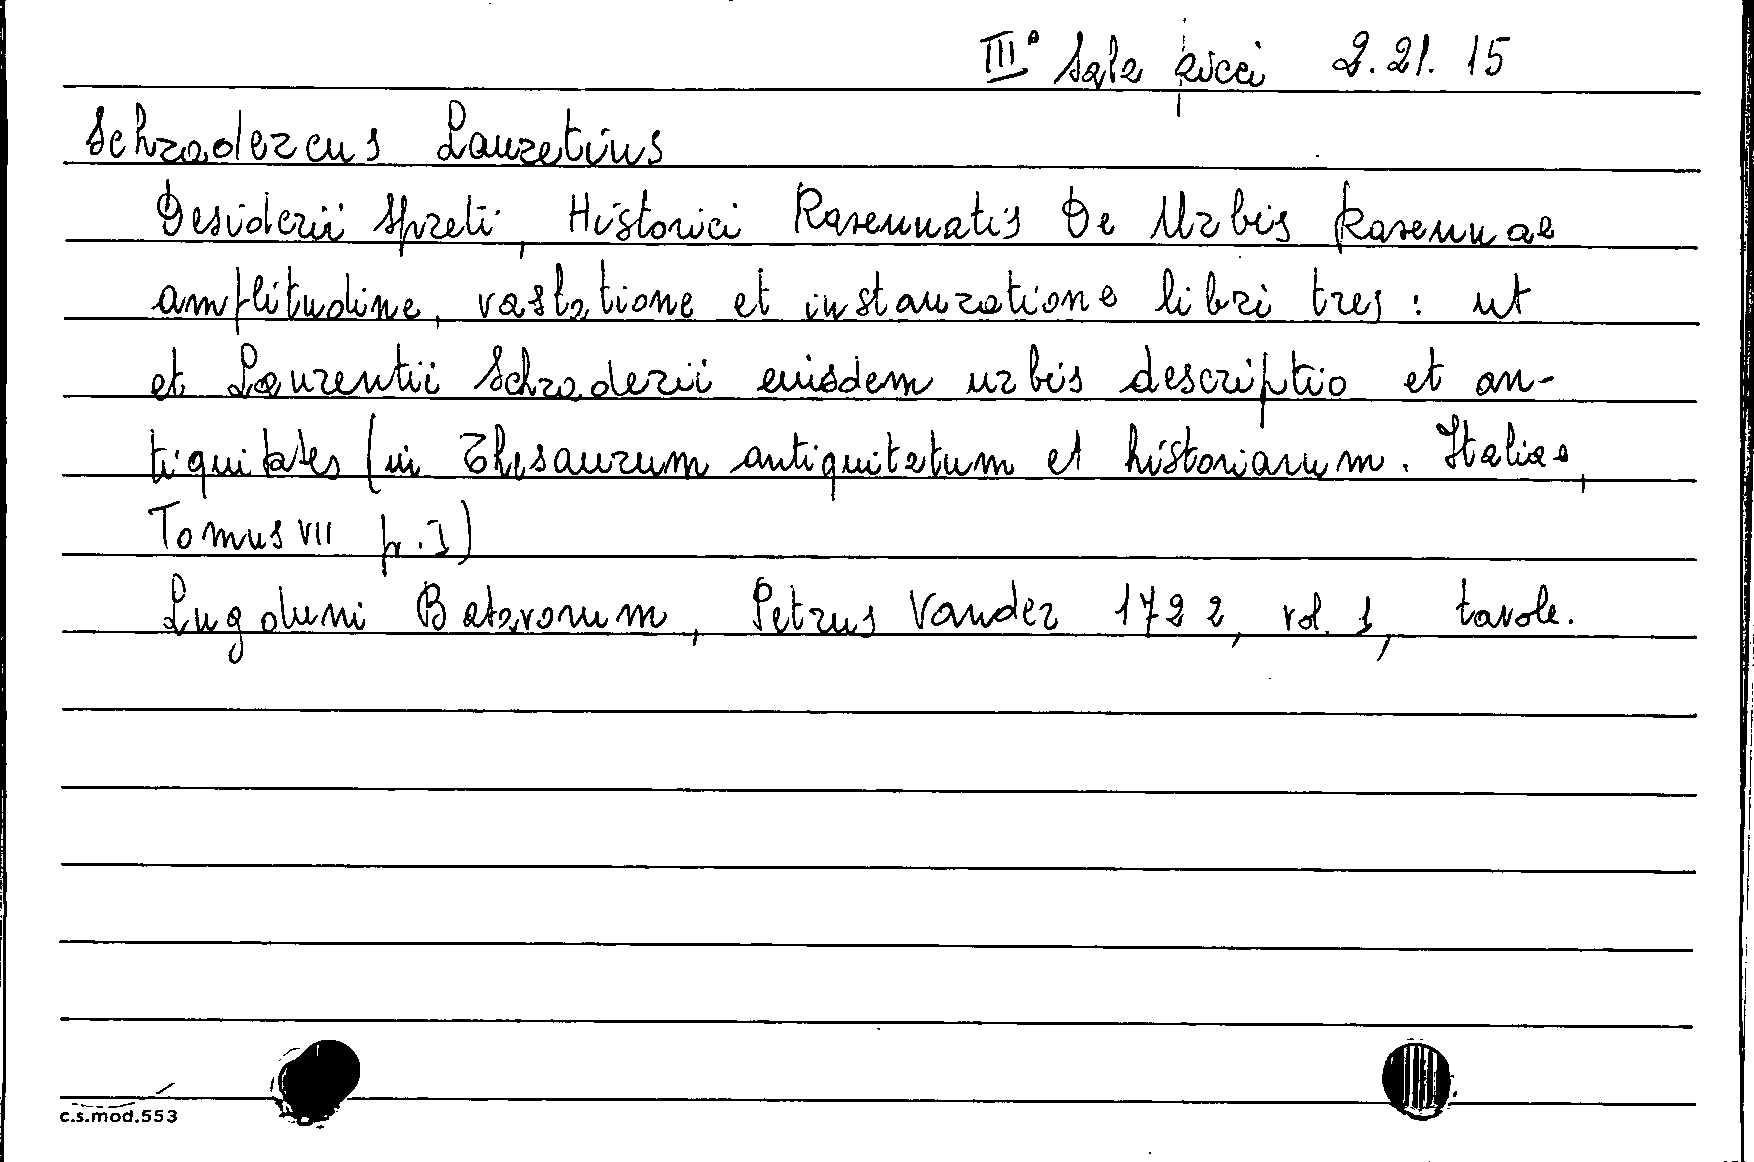 III° Sala Ricci 2.21.15
Schradercus Lauretius
Desiderii Spreti, Historici Ravennatis De Urbis Ravennae
amplitudine, vastatione et instauratione libri tres : ut
et Laurentii Schraderii euisdem urbis descriptio et an-
tiquitates (in Thesaurum antiquitatum et historiarum. Italiae,
Tomus VII p. I)
Lugduni Batavorum, Petrus Vander 1722, vol. 1, tavole.
c.s.mod.553